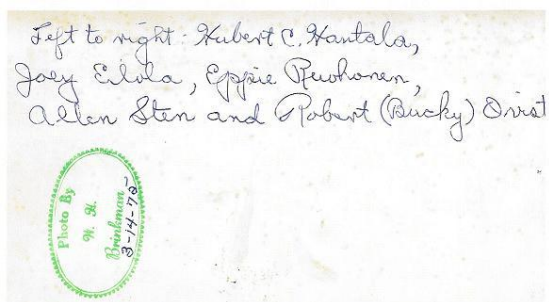 Left to right: Hubert C. Hantala,
Joey Eilola, Eppie Revohonen,
Allen Sten and Robert (Bucky) Ovist
Photo By
H. H.
Brinkman
3-14-72